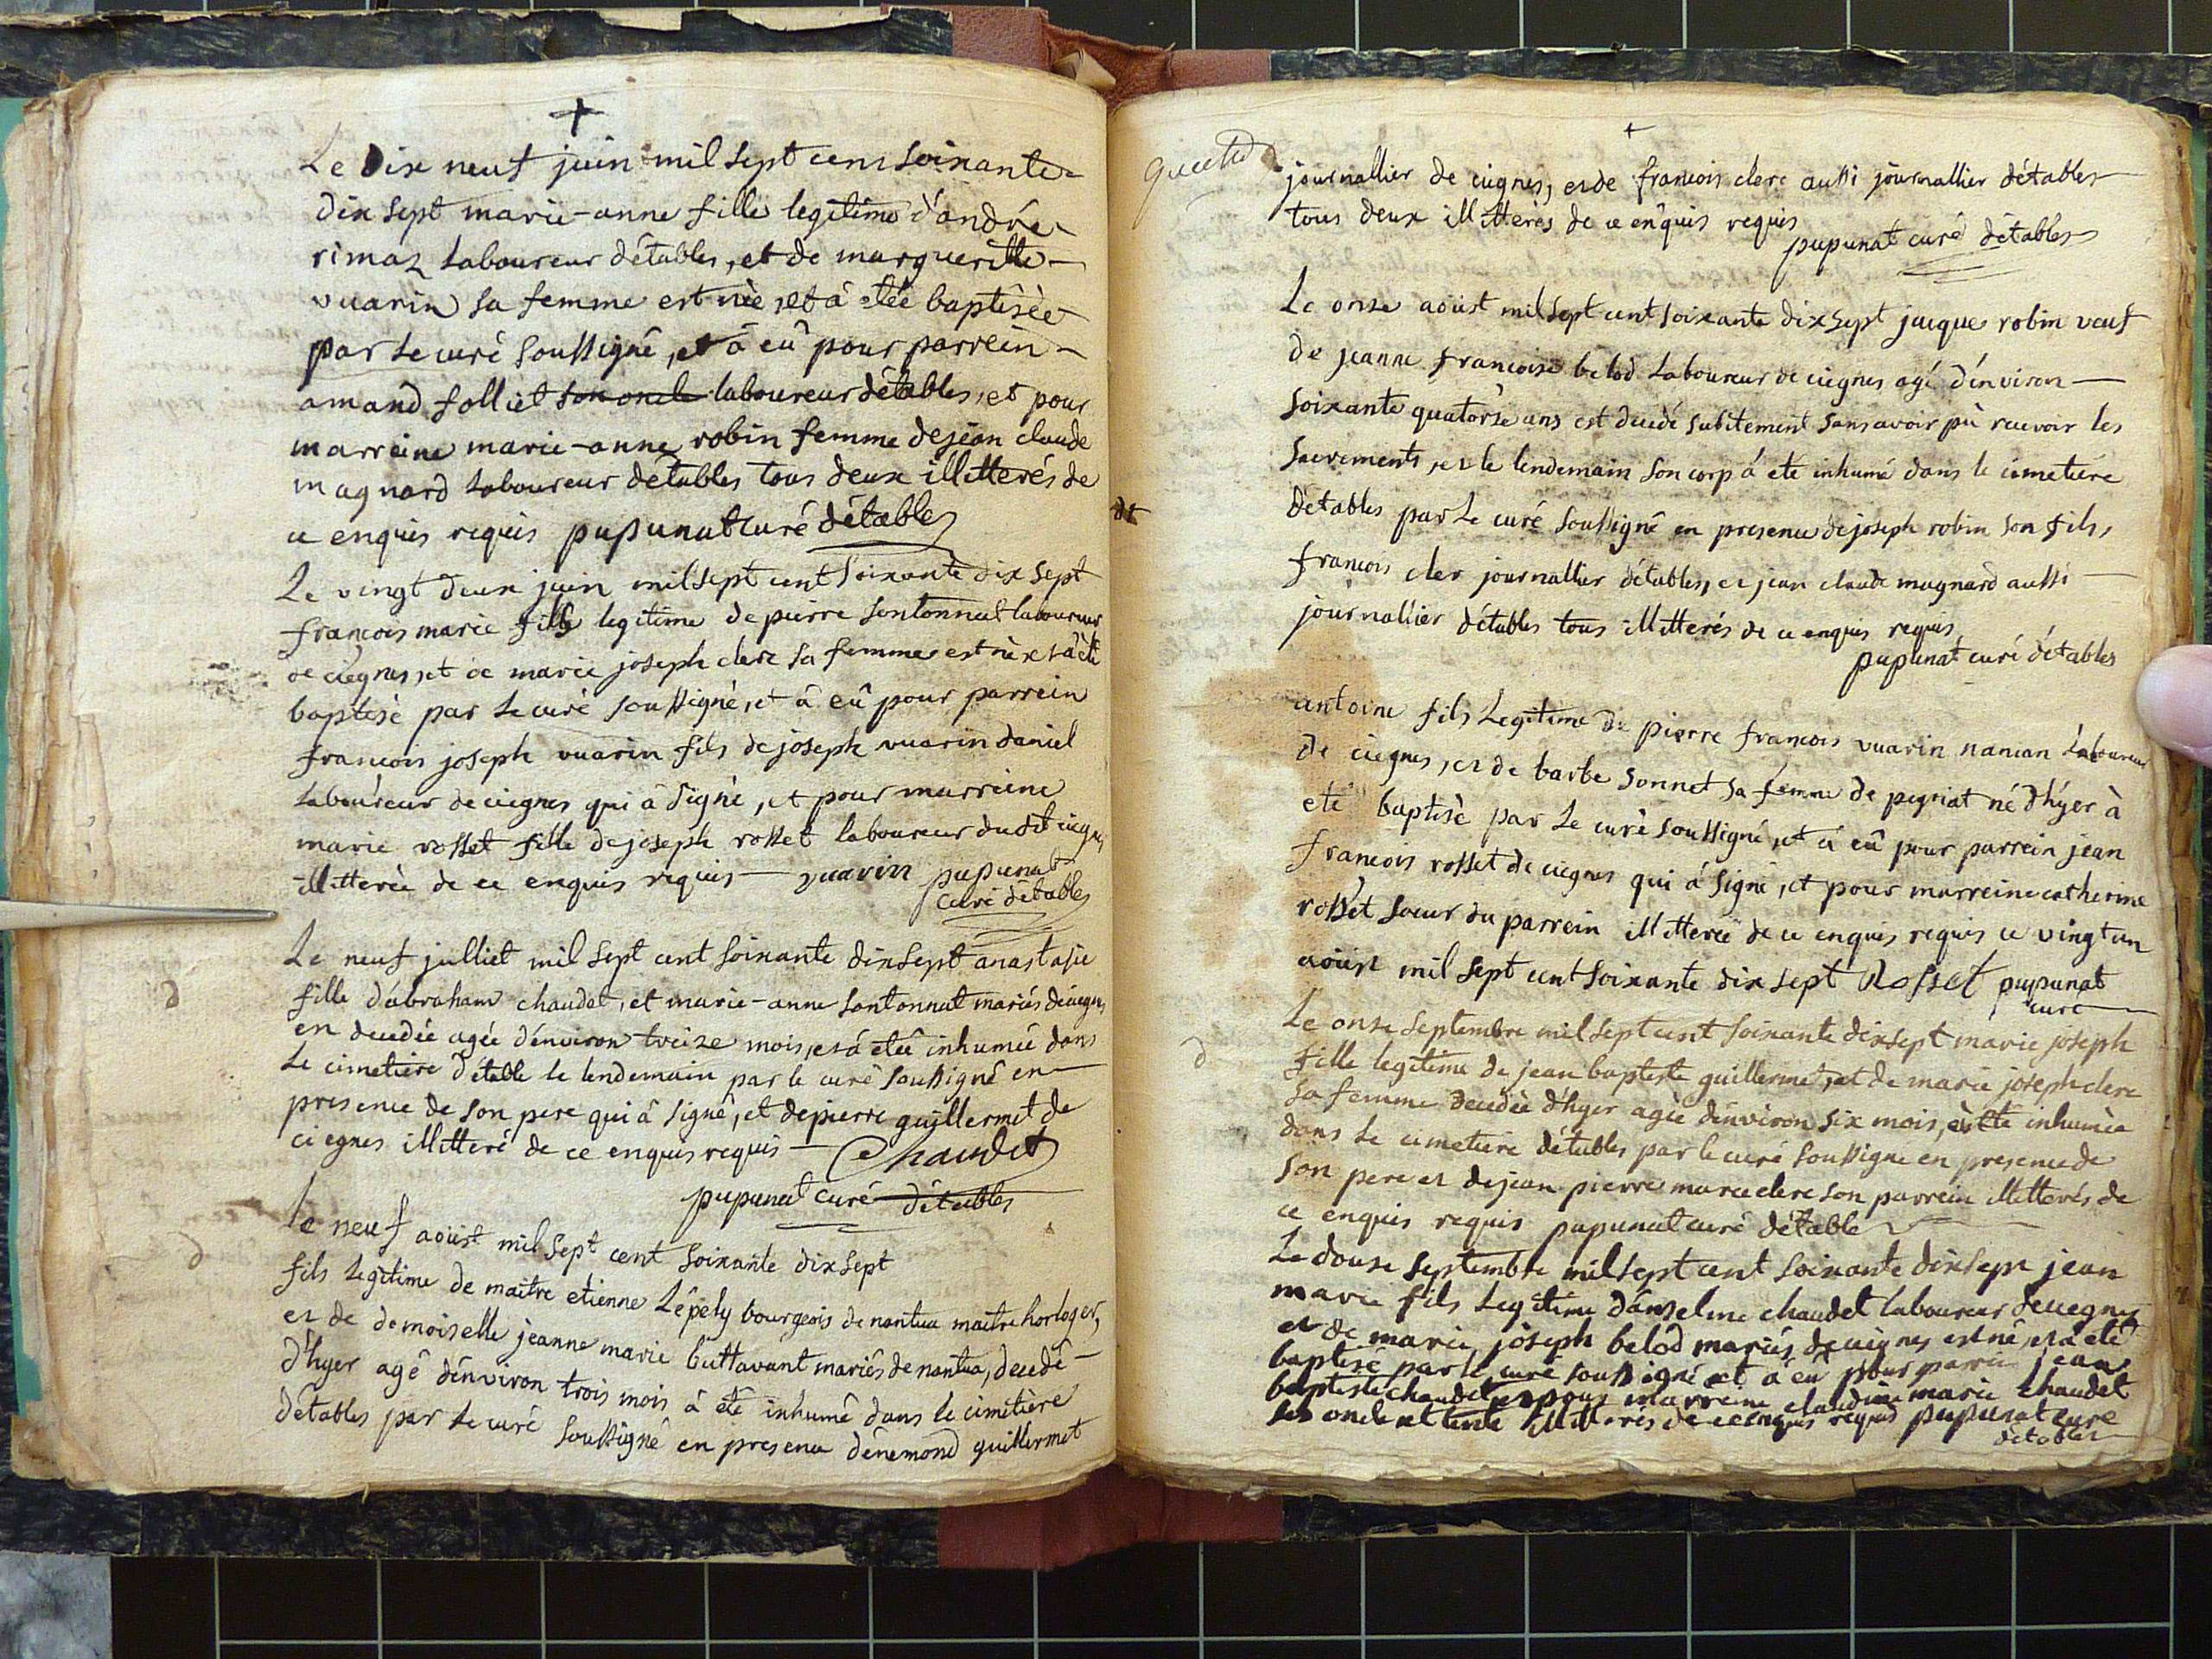 +
Le Dix neuf juin mil sept cent soixante
dix sept marie-anne fille legitime d'andré
rimaz Laboureur d'étables, et de margueritte
vuarin sa femme est née, et à etée baptisée
par Le curé soussigné, et à eû pour parrein
amand folliet son oncle laboureur détables, et pour
marreine marie-anne robin femme de jean claude
magnard Laboureur détables tous deux illitterés de
ce enquis requis pupunat Curé détables
Le vingt deux juin mil sept cent soixante dix sept
francois marie fils legitime de pierre sontonnat laboureur
de ciegnes, et de marie joseph clerc sa femme est né et à été
baptisé par Le curé soussigné, et à eû pour parrein
francois joseph vuarin fils de joseph vuarin daniel
Laboureur de ciegnes qui à signé, et pour marreine
marie rosset fille de joseph rosset laboureur dudit ciegnes
illitterée de ce enquis requis vuarin pupunat
Curé détables
Le neuf julliet mil sept cent soixante dix sept anastasie
d
fille d'abraham chaudet, et marie-anne sontonnat mariés de ciegnes
en decedée agée d'environ treize mois, et à etée inhumée dans
Le cimetiere d'étable le lendemain par le curé soussigné en
presence de son pere qui à signé, et de pierre guillermet de
ciegnes illitteré de ce enquis requis Chaudet
pupunat curé détables
Le neuf aoust mil sept cent soixante dix sept
d
fils legitime de maitre etienne Lépely bourgeois de nantua maitre horloger,
et de demoiselle jeanne marie buttavant mariés de nantua, decedé
d'hyer agé d'environ trois mois à été inhumé dans le cimetière
détables par Le curé soussigné en presence dénemond guillermet
+
journallier de ciegnes, et de francois clerc aussi journallier détables
tous deux illitterés de ce enquis requis
pupunat curé détables
Le onse aoust mil sept cent soixante dix sept jacque robin veuf
de jeanne francoise belod Laboureur de ciegnes agé d'environ
soixante quatorse ans est decedé subitement sans avoir pù recevoir les
sacrements, et le lendemain son corp à eté inhumé dans le cimetiere
détables par Le curé soussigné en presence de joseph robin son fils,
francois cler journallier détables, et jean claude magnard aussi
journallier détables tous illitterés de ce enquis requis
pupunat curé détables
antoine fils Legitime de pierre francois vuarin nancan Laboureur
de ciegnes, et de barbe sonnet sa femme de peyriat né d'hyer à
eté baptisé par Le curé soussigné, et à eû pour parrein jean
francois rosset de ciegnes qui à signé, et pour marreine catherine
rosset soeur du parrein illitterée de ce enquis requis ce vingt un
aoust mil sept cent soixante dix sept Rosset pupunat
curé
Le onse septembre mil sept cent soixante dix sept marie joseph
d
fille legitime de jean baptiste guillermet, et de marie joseph clerc
sa femme decedée d'hyer agée d'environ six mois, à eté inhumée
dans Le cimetiere détables par le curé soussigné en presence de
son pere et de jean pierre marie clerc son parrein illitterés de
ce enquis requis pupunat curé détable
Le douse septembre mil sept cent soixante dix sept jean
marie fils legitime d'anselme chaudet laboureur de ciegnes
et de marie joseph belod mariés de ciegnes est né, et à eté
baptisé par le curé soussigné et à eû pour parrein jean
baptiste chaudet et pour marreine claudine marie chaudet
ses oncle et tente illitterés de ce enquis requis pupunat curé
détables